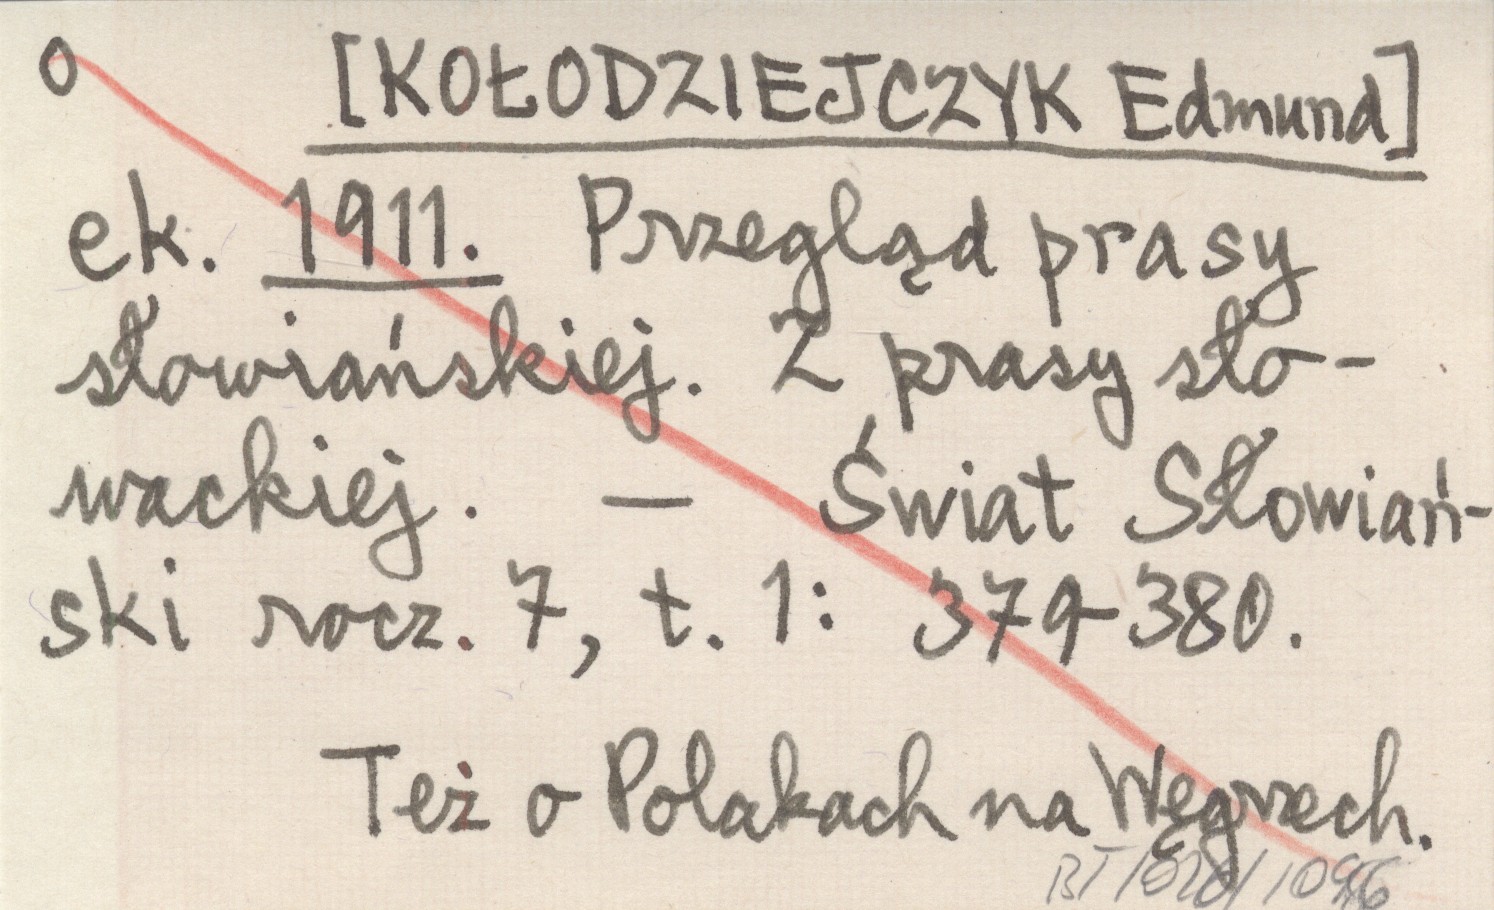 o [KOŁODZIEJCZYK Edmund]
ek. 1911. Przegląd prasy
słowiańskiej. Z prasy sło-
wackiej. — Świat Słowiań-
ski rocz. 7, t. 1: 379-380.
Też o Polakach na Węgrzech.